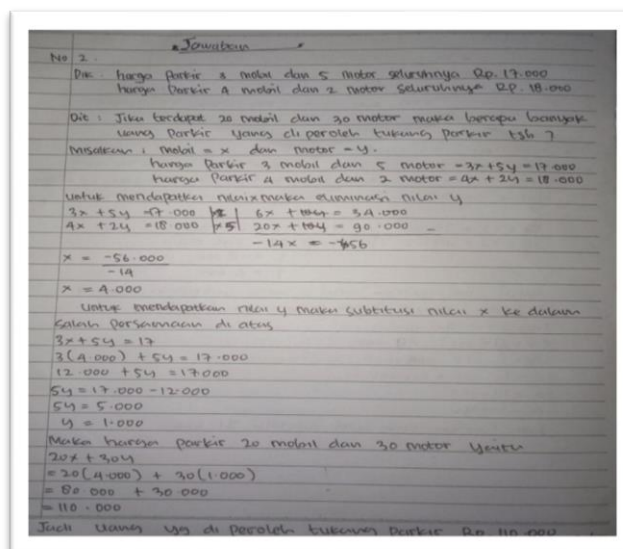 Jawaban
No 2
Dik : harga Parkir 3 mobil dan 5 motor seluruhnya Rp. 17.000
harga Parkir 4 mobil dan 2 motor seluruhnya Rp. 18.000
Dit : Jika terdapat 20 mobil dan 30 motor maka berapa banyak
uang Parkir yang di peroleh tukang parkir tsb ?
Misalkan : mobil = x dan motor = y.
harga Parkir 3 mobil dan 5 motor = 3x + 5y = 17.000
harga Parkir 4 mobil dan 2 motor = 4x + 2y = 18.000
untuk mendapatkan nilai x maka eliminasi nilai y
3x + 5y = 17.000 |x2| 6x + 10y = 34.000
4x + 2y = 18.000 |x5| 20x + 10y = 90.000 -
-14x = -56
x = -56.000
-14
x = 4.000
Untuk mendapatkan nilai y maka subtitusi nilai x ke dalam
salah persamaan di atas
3x + 5y = 17
3(4.000) + 5y = 17.000
12.000 + 5y = 17000
5y = 17.000 - 12.000
5y = 5.000
y = 1.000
Maka harga parkir 20 mobil dan 30 motor yaitu
20x + 30y
= 20(4.000) + 30(1.000)
= 80.000 + 30.000
= 110.000
Jadi uang yg di peroleh tukang parkir Rp 110.000